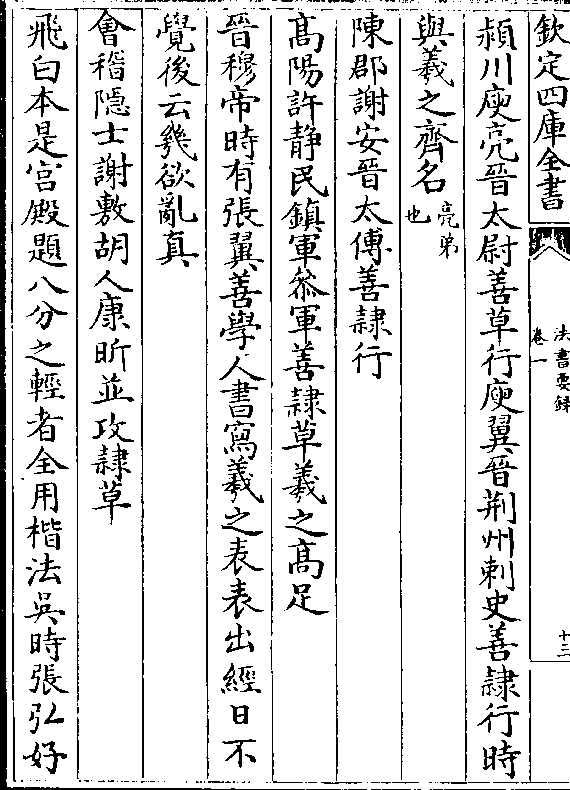 欽定四庫全書
法書要録
卷一
十三
頴川庾亮晉太尉善草行庾翼晉荆州刺史善隷行時
與羲之齊名亮弟也
陳郡謝安晉太傅善隷行
髙陽許静民鎮軍叅軍善隷草羲之髙足
晉穆帝時有張翼善學人書寫羲之表表出經日不
覺後云幾欲亂真
會稽隠士謝敷胡人康昕並攻隷草
飛白本是宫殿題八分之輕者全用楷法吳時張弘好